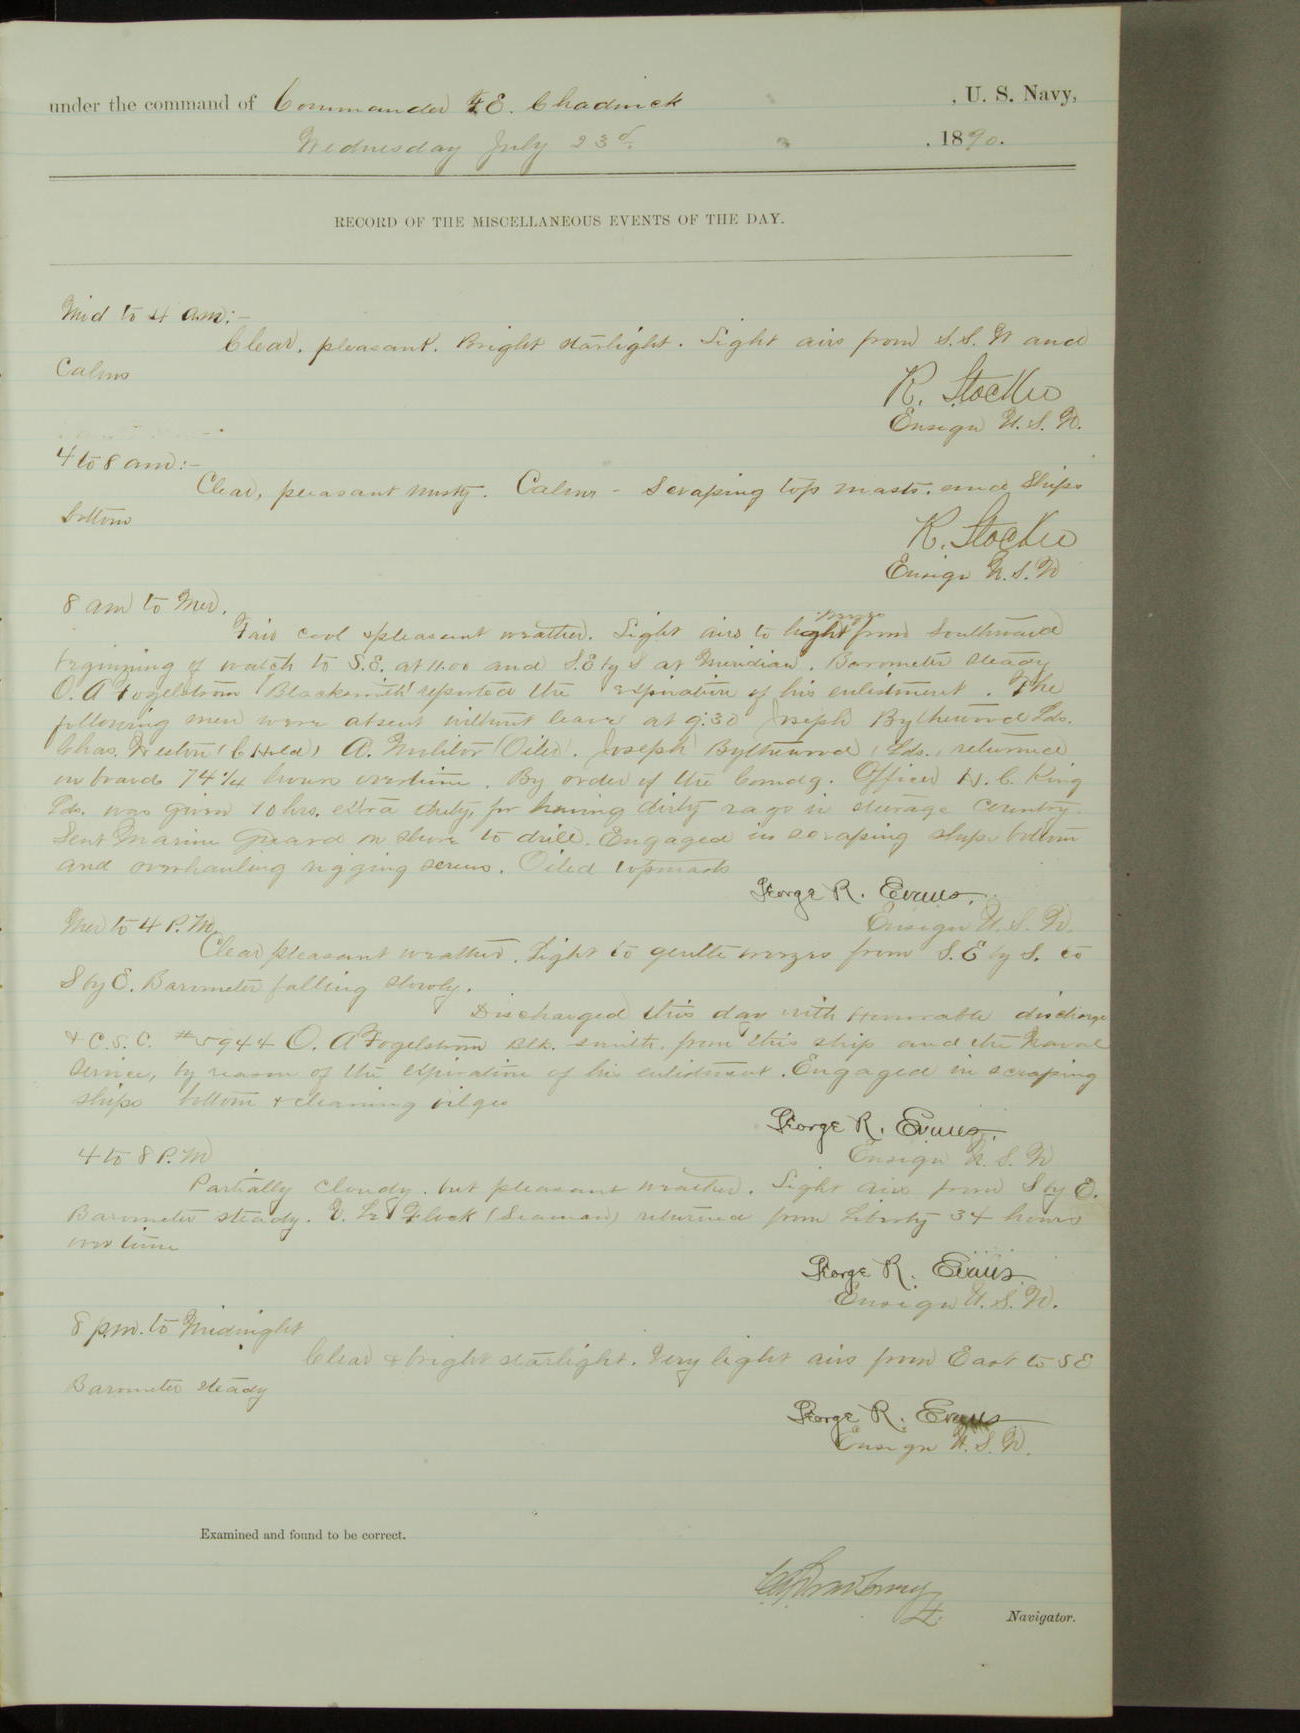 under the command of Commander F. E. Chadwick , U. S. Navy,
Wednesday July 23d. , 1890.
RECORD OF THE MISCELLANEOUS EVENTS OF THE DAY.
Mid to 4 am:-
Clear, pleasant. Bright starlight. Light airs from S.S.W and
Calms
R. Stocker
Ensign U.S.N.
4 to 8 am:-
Clear, pleasant misty. Calms - Scraping top masts, and Ships
bottom
R. Stocker
Ensign U.S.N
8 am to Mer.
Fair cool & pleasant weather. Light airs to light breezes from Southward
beginning of watch to S.E. at 11.00 and S.E by S at Meridian. Barometer steady
O. A Fogelstrom (Blacksmith) reported the expiration of his enlistment. The
following men were absent without leave at 9:30 Joseph Bythewood Lds.
Chas. Weston (C Hold) A. Molitor (Oiler). Joseph Bythewood (Lds.) returned
on board 74 1/4 hours overtime. By order of the Comdg. Officer N. C. King
Lds. was given 10 hrs. extra duty, for having dirty rags in steerage Country.
Sent Marine Guard on shore to drill. Engaged in scraping ships bottom
and overhauling rigging screws. Oiled topmasts
George R. Evans.
Ensign U.S.N.
Mer to 4 P.M.
Clear pleasant weather. Light to gentle breezes from S.E by S. to
S by E. Barometer falling slowly.
Discharged this day with Honorable discharge
& C.S.C. #5944 O. A Fogelstrom Blk. smith, from this ship and the Naval
Service, by reason of the expiration of his enlistment. Engaged in scraping
ships bottom & cleaning bilges
George R. Evans.
Ensign U.S.N
4 to 8 P.M
Partially cloudy, but pleasant weather. Light airs from S by E.
Barometer steady. Flock (Seaman) returned from Liberty 34 hours
over time
George R. Evans.
Ensign U.S.N.
8 p.m. to Midnight
Clear & bright starlight. Very light airs from East to SE
Barometer steady
George R. Evans
Ensign U.S.N.
Examined and found to be correct.
Navigator.